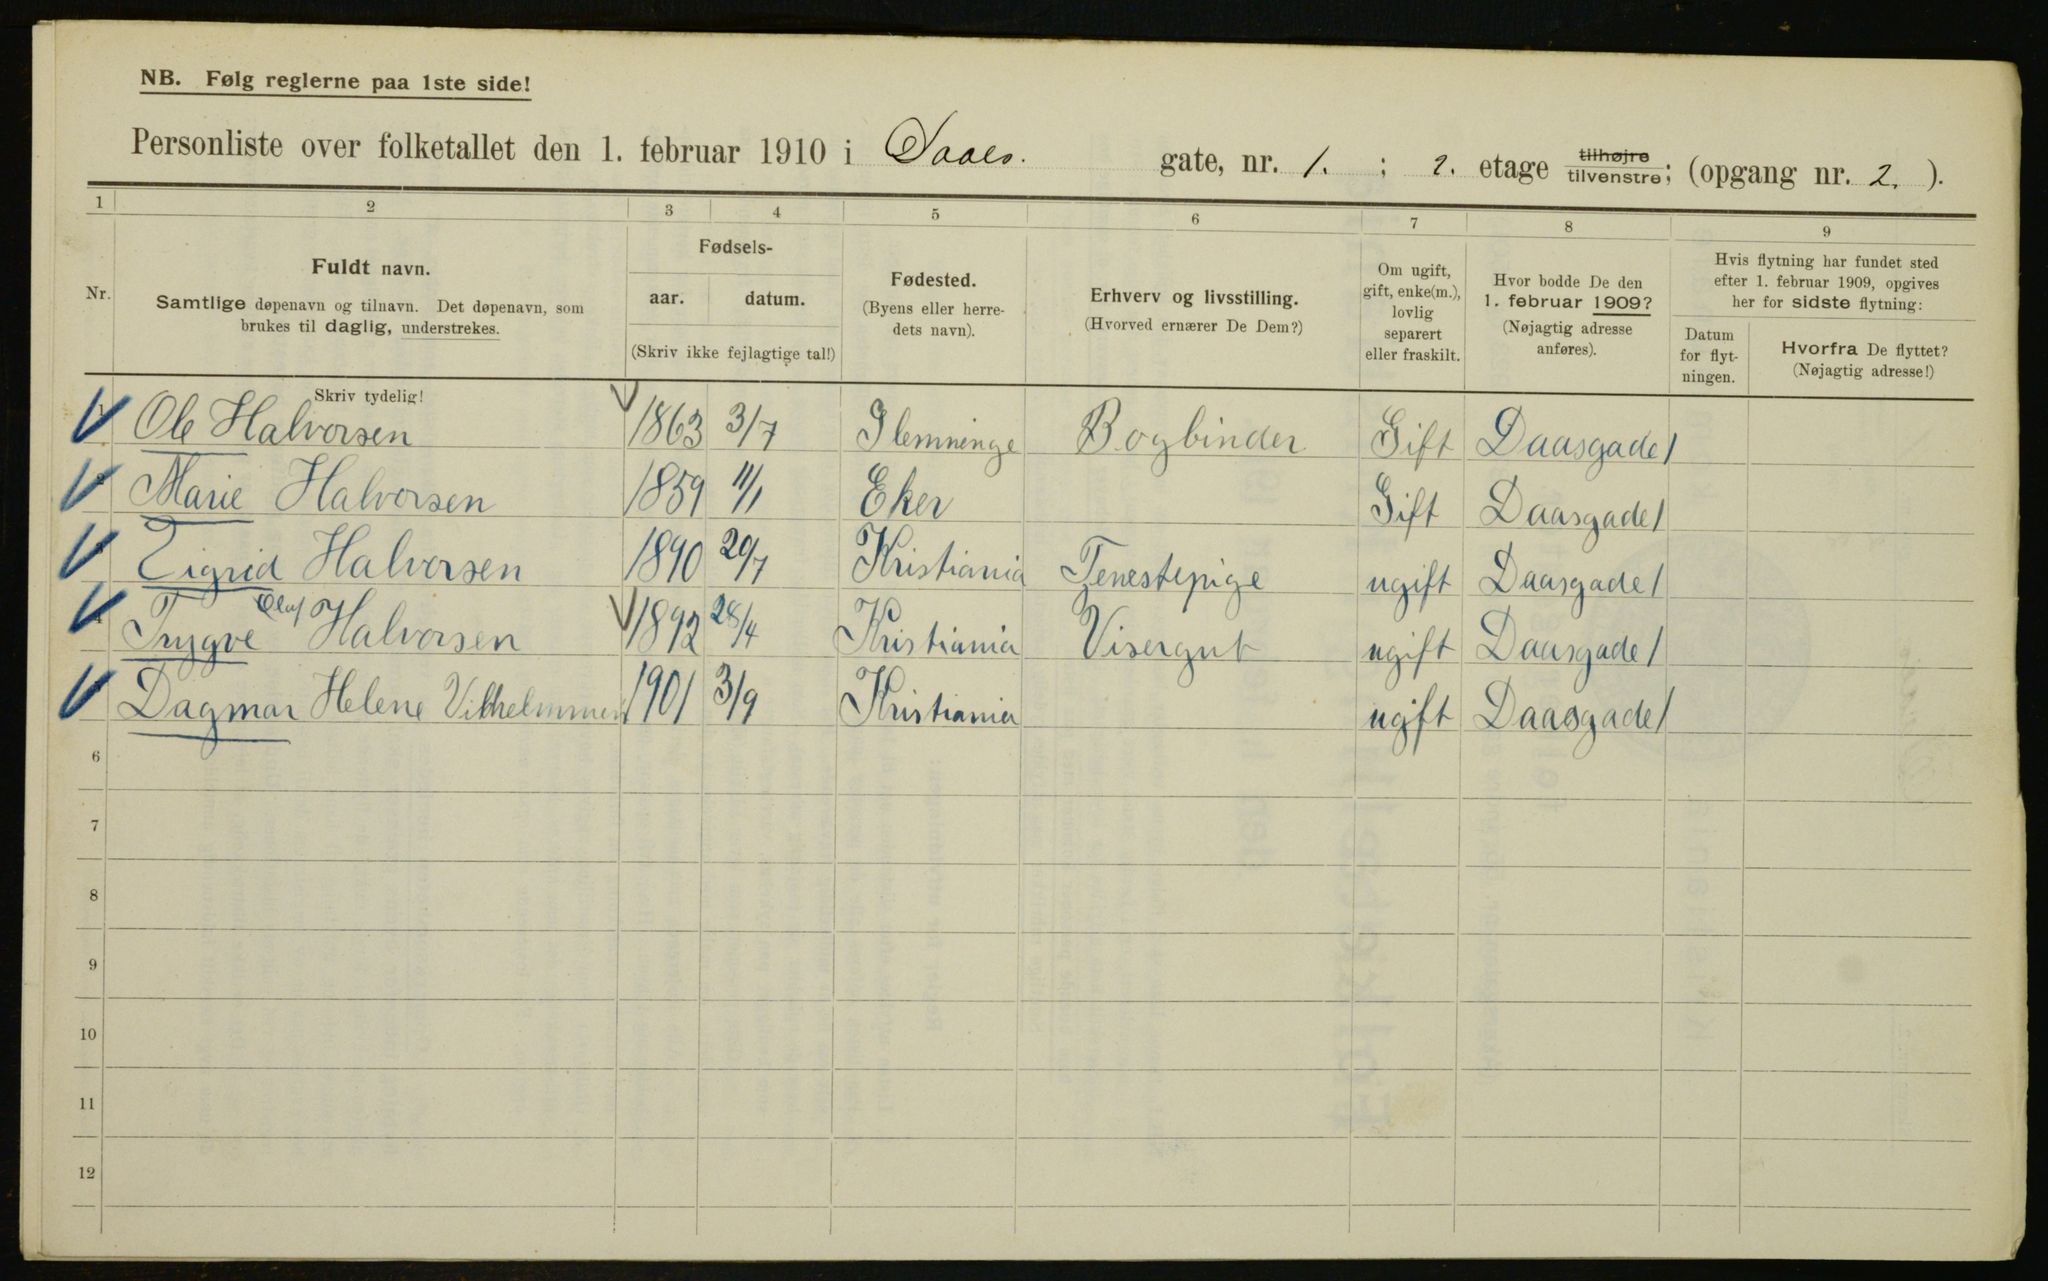 NB. Følg reglerne paa 1ste side!
Personliste over folketallet den 1. februar 1910 i Daaes. gate, nr. 1. ; 2. etage tilhøjre tilvenstre; (opgang nr. 2. ).
1 2 3 4 5 6 7 8 9
Nr.
Fuldt navn.
Samtlige døpenavn og tilnavn. Det døpenavn, som
brukes til daglig, understrekes.
Fødsels-
aar. datum.
(Skriv ikke fejlagtige tal!)
Fødested.
(Byens eller herre-
dets navn).
Erhverv og livsstilling.
(Hvorved ernærer De Dem?)
Om ugift,
gift, enke(m.),
lovlig
separert
eller fraskilt.
Hvor bodde De den
1. februar 1909?
(Nøjagtig adresse
anføres).
Hvis flytning har fundet sted
efter 1. februar 1909, opgives
her for sidste flytning:
Datum
for flyt-
ningen.
Hvorfra De flyttet?
(Nøjagtig adresse!)
Skriv tydelig!
1 Ole Halvorsen 1863 3/7 Slemninge Bogbinder Gift Daasgade 1
2 Marie Halvorsen 1859 11/1 Eker Gift Daasgade 1
3 Zigrid Halvorsen 1890 20/7 Kristiania Tenestepige ugift Daasgade 1
4 Trygve Olaf Halvorsen 1892 28/4 Kristiania Visergut ugift Daasgade 1
Dagmar Helene 1901 3/9 Kristiania ugift Daasgade 1
6
7
8
9
10
11
12